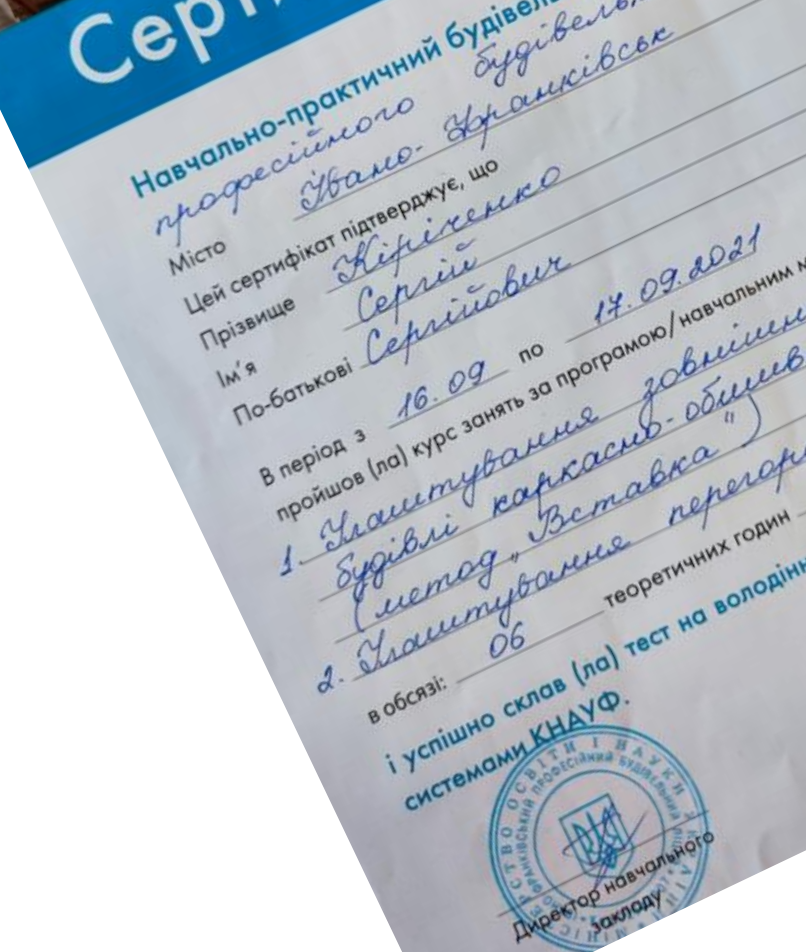 Серт
Навчально-практичний будівель
професійного будівельн
Місто Івано-Франківськ
Цей сертифікат підтверджує, що
Прізвище Кіріченко
Ім'я Сергій
По-батькові Сергійович
В період з 16.09 по 17.09.2021
пройшов (ла) курс занять за програмою/навчальним м
1. Улаштування зовнішн
будівлі каркасно-обшив
(метод „Вставка")
2. Улаштування перегор
в обсязі: 06 теоретичних годин
і успішно склав (ла) тест на володінн
системами КНАУФ.
Директор навчального
закладу